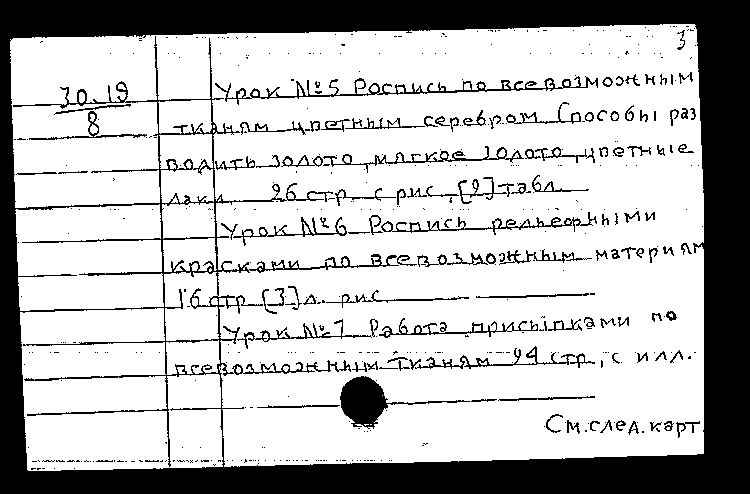 3
30.19
8
Урок №5 Роспись по всевозможным
тканям цветным серебром Способы раз
водить золото, мягкое золото, цветные
лаки 26 стр. с рис., [2] табл.
Урок №6 Роспись рельефными
красками по всевозможным материям
16 стр [3] л. рис.
Урок №7 Работа присыпками по
всевозможным тканям 94 стр., с илл.
См. след. карт.